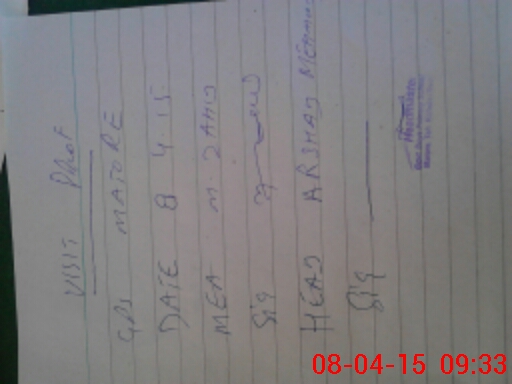 VISIT Proof
GPS MATORE
DATE 8 4.15
MEA M ZAHID
Sig
HEAD ARSHAD MEHMOOD
Sig
Headmaster
08-04-15 09:33